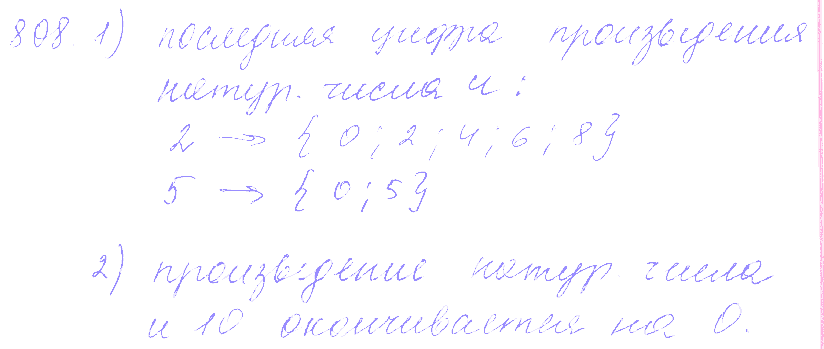 808. 1) последняя цифра произведения
натур. числа и:
2 → {0; 2; 4; 6; 8}
5 → {0; 5}
2) произведение натур. числа
и 10 оканчивается на 0.